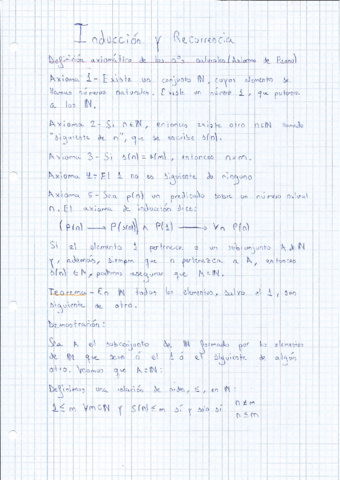 Inducción y Recurrencia
Definición axiomática de los nºs naturales (Axiomas de Peano)
Axioma 1- Existe un conjunto ℕ, cuyos elementos se
llaman números naturales. Existe un número 1, que pertenece
a los ℕ.
Axioma 2- Si n∈ℕ, entonces existe otro n∈ℕ llamado
"siguiente de n", que se escribe s(n).
Axioma 3- Si s(n)=s(m), entonces n=m.
Axioma 4- El 1 no es siguiente de ninguno
Axioma 5- Sea p(n) un predicado sobre un número natural
n. El axioma de inducción dice:
(P(n) → P(s(n))) ∧ P(1) → ∀n P(n)
Si el elemento 1 pertenece a un subconjunto A de ℕ
y, además, siempre que n pertenezca a A, entonces
s(n) ∈ A, podremos asegurar que A=ℕ.
Teorema- En ℕ todos los elementos, salvo el 1, son
siguiente de otro.
Demostración:
Sea A el subconjunto de ℕ formado por los elementos
de ℕ que sean ó el 1 ó el siguiente de algún
otro. Veamos que A=ℕ:
Definimos una relación de orden, ≤, en ℕ:
1≤m ∀m∈ℕ y s(n)≤m si y solo si n≠m
n≤m